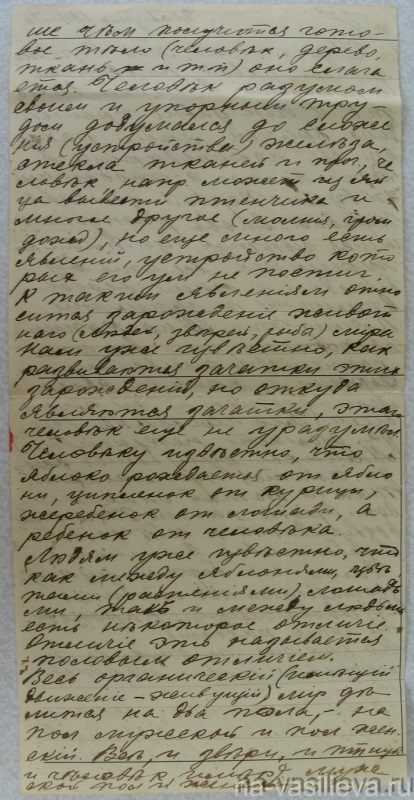 ше чѣм получится гото-
вое тѣло (человѣк, дерево,
ткань и т.п) оно слага
ется. Человѣк разумом
своем и упорным тру-
дом додумался до сложе
ния (устройства) желѣза,
стекла тканей и проч, че
ловѣк, напр. может из яй
ца вывести птенчика и
многое другое (молния, гром
дождь), но еще много есть
явленій, устройство кото
рых его ум не постиг.
К таким явленіям отно
сится зарожденіе живот
наго (людей, звѣрей, рыбы) міра
Нам уже извѣстно, как
развиваются зачатки этих
зарожденій, но откуда
являются зачатки, этаго
человѣк еще не уразумѣл.
Человѣку извѣстно, что
яблоко рождается от ябло
ни, ципленок от курицы,
жеребенок от лошади, а
ребенок от человѣка.
Людям уже извѣстно, что
как между яблонями, цвѣ
тами (растеніями) лошадь
ми, так и между людьми
есть нѣкоторое отличіе.
Отличіе это называется
половым отличіем.
Весь органическій (имѣющій
движеніе – живущій) мір дѣ
лится на два пола, – на
пол мужской и пол жен-
скій. Всѣ, и звѣри, и птицы
и человѣк, имѣют муже
ской пол и женскій
na-vasilieva.ru